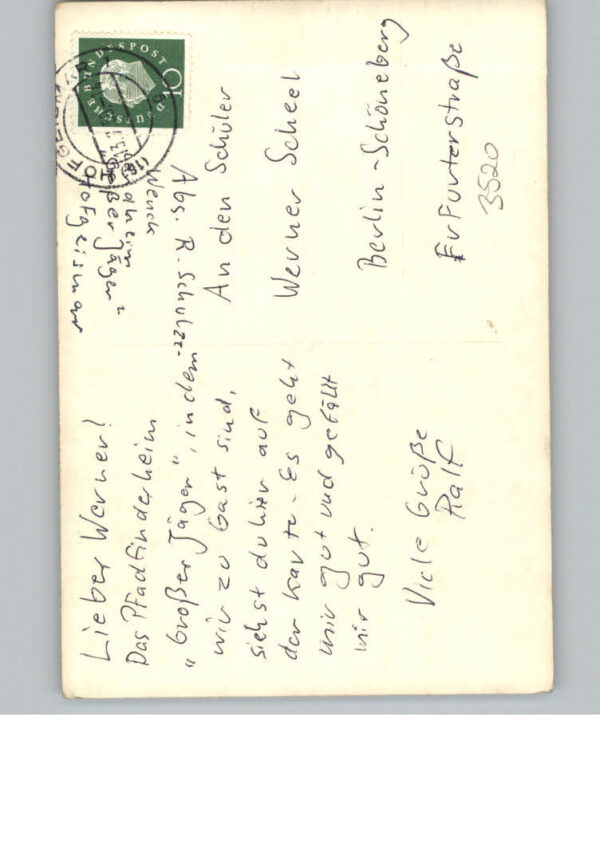 Lieber Werner!
Das Pfadfinderheim
„Großer Jäger“, in dem
wir zu Gast sind,
siehst du hier auf
der Karte. Es geht
mir gut und gefällt
mir gut.
Viele Grüße
Ralf
Abs. R. Schulze-
Hofgeismar
DEUTSCHE BUNDESPOST
10
An den Schüler
Werner Scheel
Berlin-Schöneberg
Erfurterstraße
3520